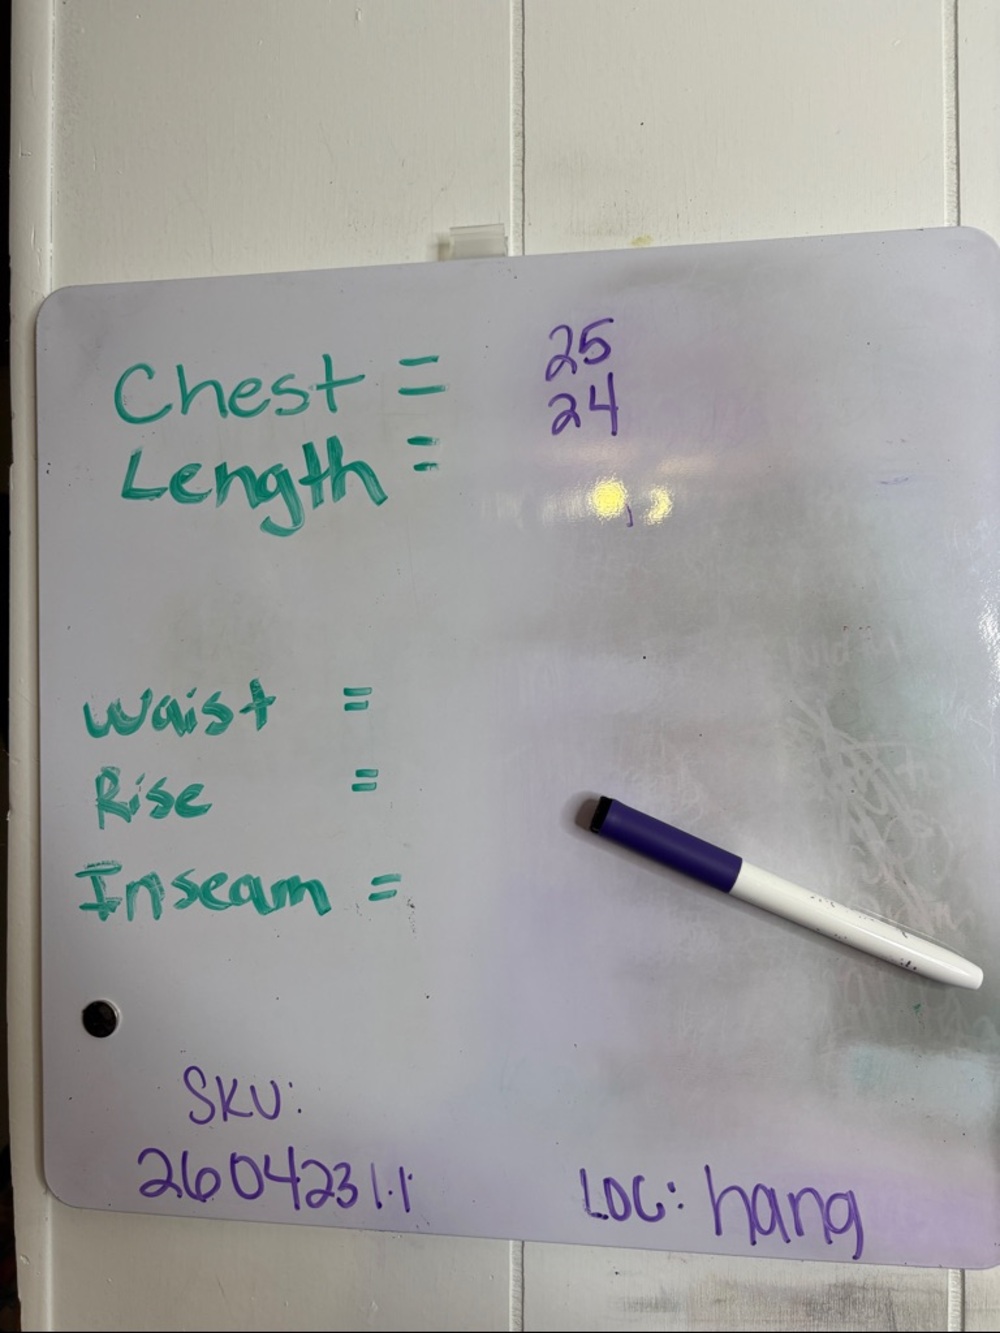 Chest = 25
Length = 24
Waist =
Rise =
Inseam =
SKU:
26042311.1
LOC: hang